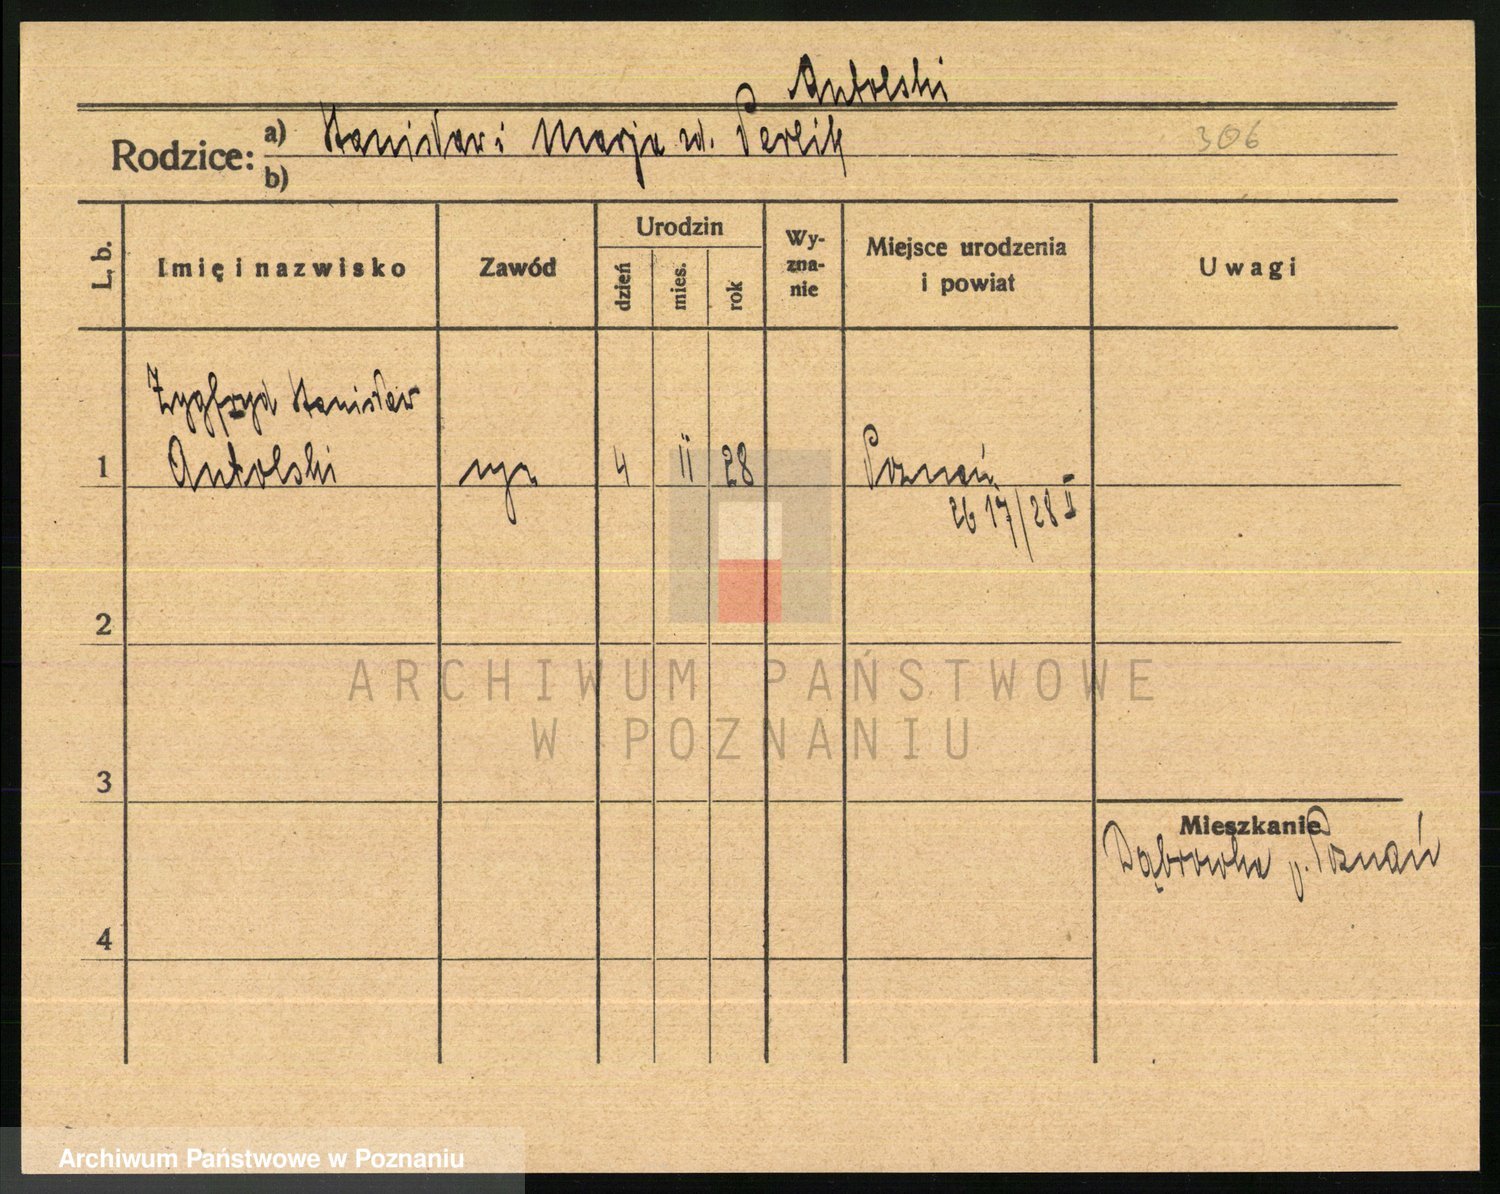 Antolski
Rodzice: a) Stanisław i Marja zd. Perlik
306
b)
L. b.
Imię i nazwisko
Zawód
Urodzin
dzień
mies.
rok
Wy-
zna-
nie
Miejsce urodzenia
i powiat
Uwagi
Zygfryd Stanisław
1 Antolski 4 II 28 Poznań
26 17/28 II
2
ARCHIWUM PAŃSTWOWE
W POZNANIU
3
Mieszkanie
Dąbrowka p. Poznań
4
Archiwum Państwowe w Poznaniu